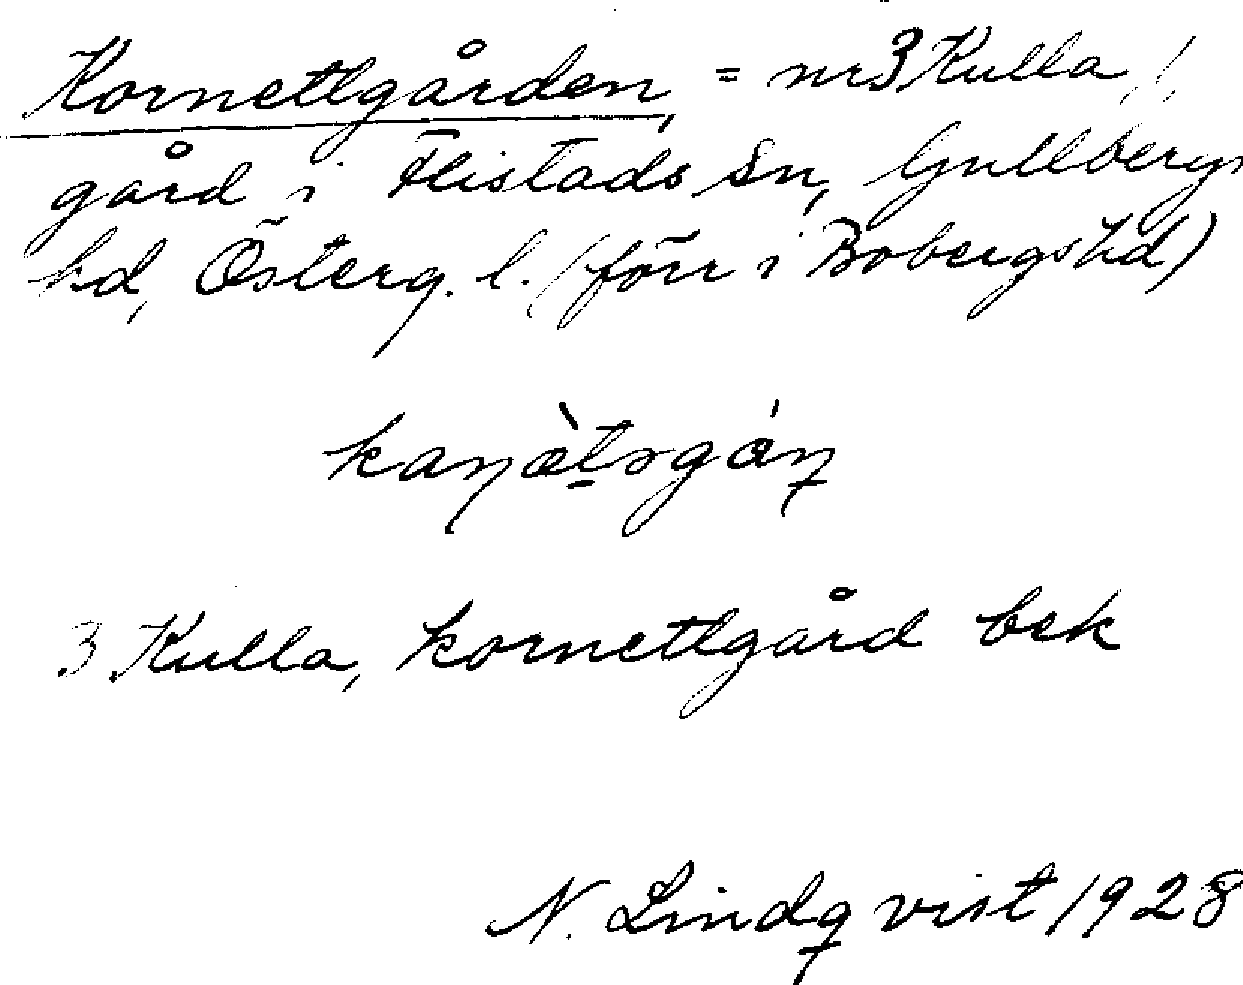 Kornettgården, = nr 3 Kulla,
gård i Flistads sn, Gullbergs
hd, Österg. l. (förr i Bobergs hd)
3 Kulla, kornettgård bek
N. Lindqvist 1928